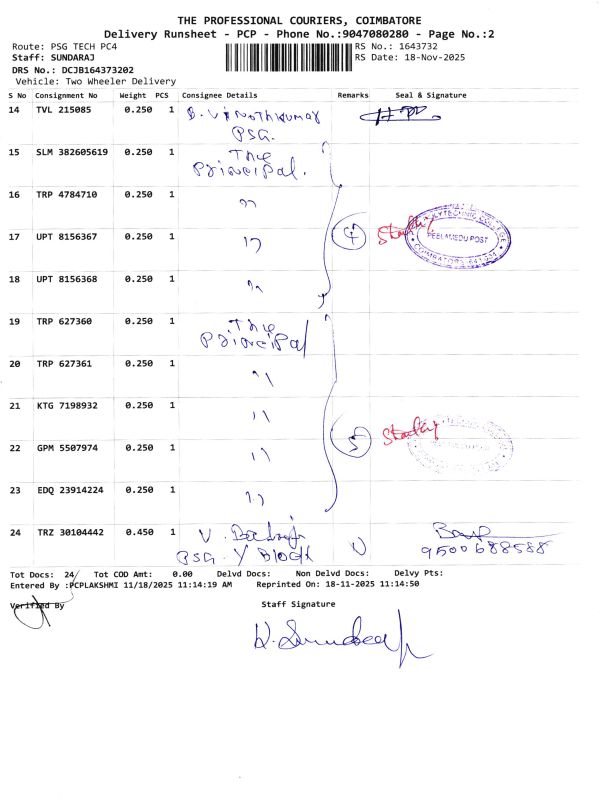 THE PROFESSIONAL COURIERS, COIMBATORE
Delivery Runsheet - PCP - Phone No.:9047080280 - Page No.:2
Route: PSG TECH PC4 RS No.: 1643732
Staff: SUNDARAJ RS Date: 18-Nov-2025
DRS No.: DCJB164373202
Vehicle: Two Wheeler Delivery
S No Consignment No Weight PCS Consignee Details Remarks Seal & Signature
14 TVL 215085 0.250 1 B. Vinothkumar
PSG.
15 SLM 382605619 0.250 1 The
Principal.
16 TRP 4784710 0.250 1 "
17 UPT 8156367 0.250 1 " 4 PEELAMEDU POST
18 UPT 8156368 0.250 1 "
19 TRP 627360 0.250 1 The
Principal
20 TRP 627361 0.250 1 "
21 KTG 7198932 0.250 1 "
22 GPM 5507974 0.250 1 " 5
23 EDQ 23914224 0.250 1 "
24 TRZ 30104442 0.450 1 V.
PSG. Y Block 9500688588
Tot Docs: 24 Tot COD Amt: 0.00 Delvd Docs: Non Delvd Docs: Delvy Pts:
Entered By :PCPLAKSHMI 11/18/2025 11:14:19 AM Reprinted On: 18-11-2025 11:14:50
Verified By Staff Signature